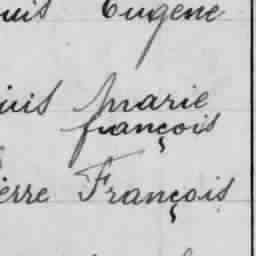 uis Eugene
uis Marie
françois
ierre François